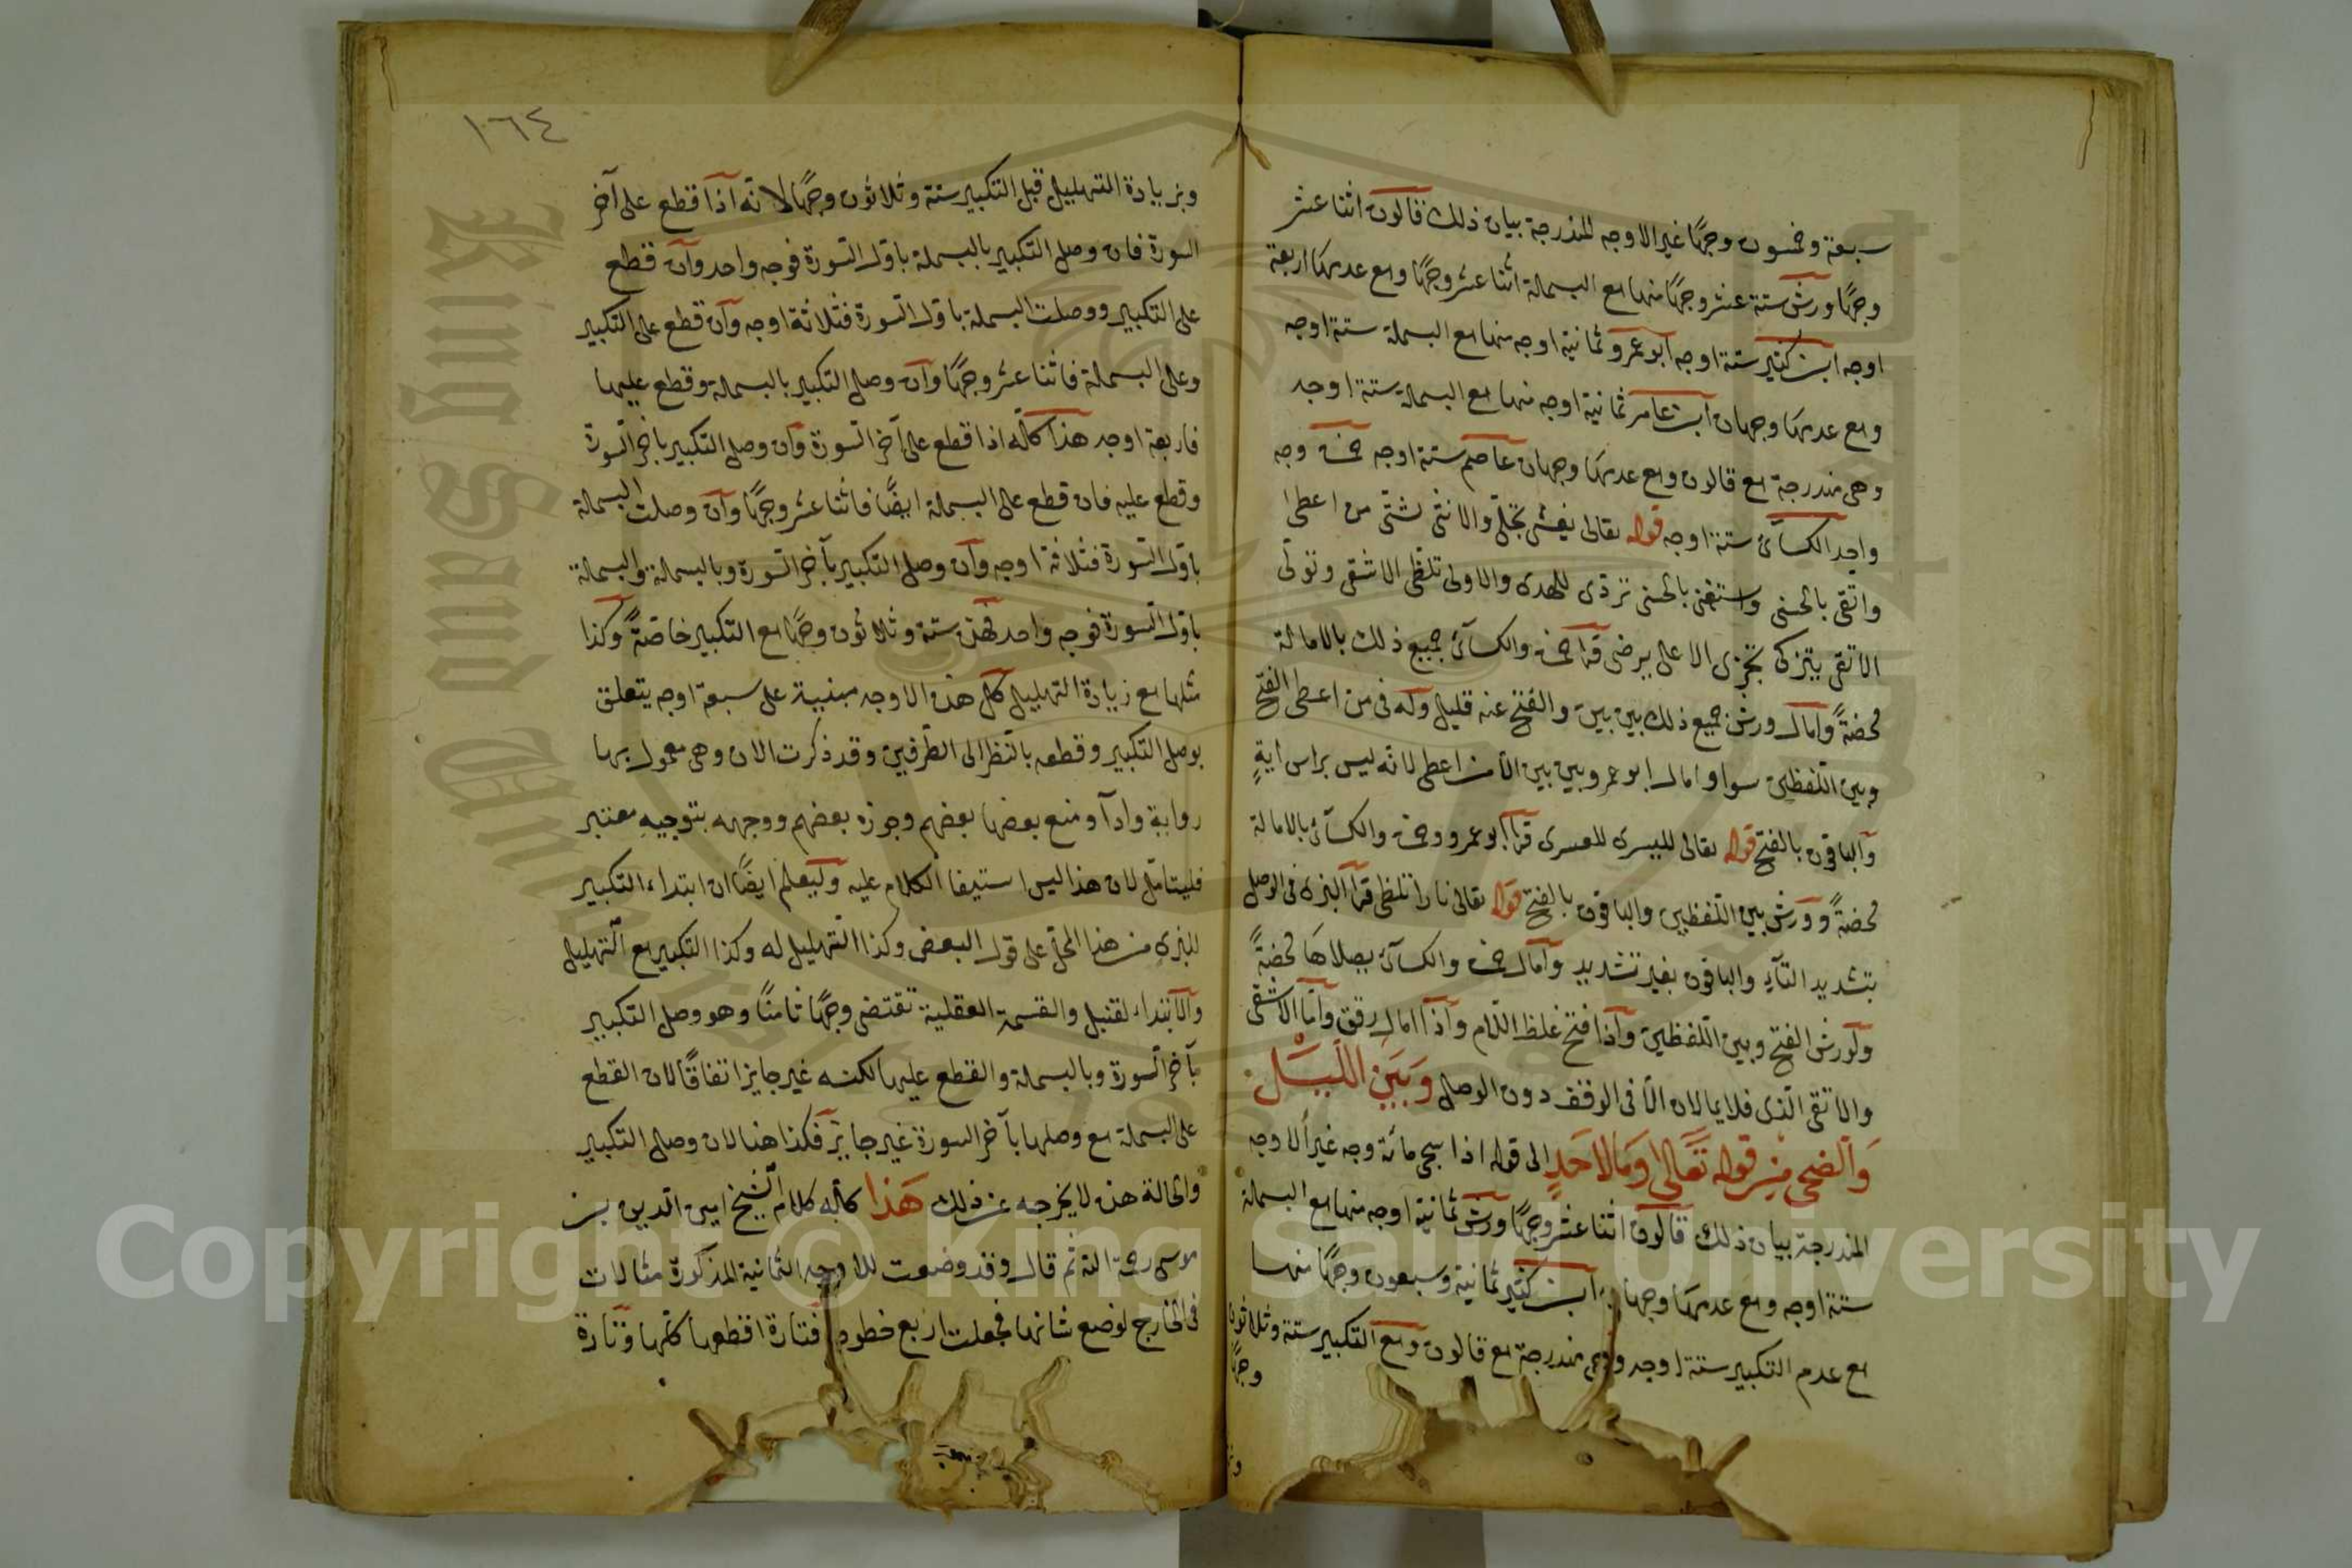 سبعة وخمسون وجهًا غير الاوجه المندرجة بيان ذلك قالون اثنا عشر
وجهًا ورش ستة عشر وجهًا منها مع البسملة اثنا عشر وجهًا ومع عدمها اربعة
اوجه ابن كثير ستة اوجه ابو عمرو ثمانية اوجه منها مع البسملة ستة اوجه
ومع عدمها وجهان ابن عامر ثمانية اوجه منها مع البسملة ستة اوجه
وهى مندرجة مع قالون ومع عدمها وجهان عاصم ستة اوجه حمزة وجه
واحد الكسآئ ستة اوجه قوله تعالى يغشى تجلّى والانثى لشتّى من اعطى
واتّقى بالحسنى واستغنى بالحسنى تردّى للهدى والاولى تلظّى الاشقى وتولّى
الاتقى يتزكى تجزى الاعلى يرضى قرا حمزة والكسآئ جميع ذلك بالامالة
محضةً وامال ورش جميع ذلك بين بين والفتح عنه قليل وله فى من اعطى الفتح
وبين اللّفظين سوا وامال ابو عمرو بين بين الّا من اعطى لانّه ليس براس ايةٍ
والباقون بالفتح قوله تعالى لليسرى للعسرى قرا ابو عمرو وحمزة والكسآئ بالامالة
محضةً وورش بين اللّفظين والباقون بالفتح قوله تعالى نارا تلظى قرا البزى فى الوصل
بتشديد التآء والباقون بغير تشديد وامال حمزة والكسآئ يصلاها محضةً
ولورش الفتح وبين اللّفظين واذا فتح غلظ اللّام واذا امال رقق وامّا الاشقى
والاتقى الّذى فلا يمالان الّا فى الوقف دون الوصل وَبَيْنَ اللَّيْل
وَالضحى مِنْ قوله تَعَالى وَمَا لاحَدٍ الى قوله اذا سجى مائة وجه غير الاوجه
المندرجة بيان ذلك قالون اثنا عشر وجهًا ورش ثمانية اوجه منها مع البسملة
ستة اوجه ومع عدمها وجهان ابن كثير ثمانية وسبعون وجهًا منها
مع عدم التكبير ستة اوجه وهى مندرجة مع قالون ومع التكبير ستة وثلاثون
وجهًا
١٦٤
وبزيادة التهليل قبل التكبير ستة وثلاثون وجهًا لانّه اذا قطع على آخر
السورة فان وصل التكبير بالبسملة باوّل السّورة فوجه واحد وان قطع
على التكبير ووصلت البسملة باوّل السّورة فثلاثة اوجه وان قطع على التكبير
وعلى البسملة فاثنا عشر وجهًا وان وصل التكبير بالبسملة وقطع عليها
فاربعة اوجه هذا كلّه اذا قطع على آخر السّورة وان وصل التكبير باخر السّورة
وقطع عليه فان قطع على البسملة ايضًا فاثنا عشر وجهًا وان وصلت البسملة
باوّل السّورة فثلاثة اوجه وان وصل التكبير بآخر السّورة وبالبسملة والبسملة
باوّل السّورة فوجه واحد فهذه ستة وثلاثون وجهًا مع التكبير خاصّةً وكذا
مثلها مع زيادة التهليل كلّ هذه الاوجه مبنيية على سبعة اوجه يتعلق
بوصل التكبير وقطعه بالنّظر الى الطّرفين وقد ذكرت الان وهى معمول بها
رواية وادآ ومنع بعضها بعضهم وجوزه بعضهم ووجهه بتوجيهٍ معتبر
فليتامّل لان هذا ليس استيفا الكلام عليه وليعلم ايضًا ان ابتداء التكبير
للبزى من هذا المحلّ على قول البعض وكذا التهليل له وكذا التكبير مع التّهليل
والابتداء لقنبل والقسمة العقلية تقتضى وجهًا ثامنًا وهو وصل التكبير
بآخر السّورة وبالبسملة والقطع عليها لكنه غير جايز اتفاقًا لان القطع
على البسملة مع وصلها بآخر السورة غير جايز فكذا هنا لان وصل التكبير
والحالة هذه لا يخرجه عن ذلك هَذا كلّه كلام الشّيخ امين الدين بن
موسى رحمه الله ثم قال وقد وضعت للاوجه الثمانية المذكورة مثالات
فى الخارج لوضع شانها فجعلت اربع خطوط فتارة اقطعها كلّها وتارة